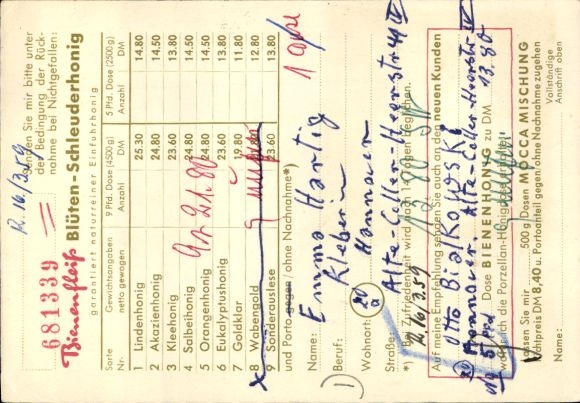 R. 16/3.59
681339
Senden Sie mir bitte unter
der Bedingung der Rück-
nahme bei Nichtgefallen:
Bienenfleiß
Blüten-Schleuderhonig
garantiert naturreiner Einfuhrhonig
Sorte Gewichtsangaben 9 Pfd. Dose (4500g) 5 Pfd. Dose (2500g)
Nr. netto gewogen Anzahl DM Anzahl DM
1 Lindenhonig 25.30 14.80
2 Akazienhonig 24.80 14.50
3 Kleehonig 23.60 13.80
4 Salbeihonig 24.80 14.50
5 Orangenhonig 24.80 14.50
6 Eukalyptushonig 23.60 13.80
7 Goldklar 19.80 11.80
x8 Wabengold 12.80
9 Sonderauslese 23.60 13.80
und Porto gegen / ohne Nachnahme*)
Name: Emma Hartig
1) Beruf: Kleberin
Wohnort: Hannover
Straße: Alte-Celler-Heerstr 44 IV
*) Bei Zufriedenheit wird nach 14 Tagen beglichen.
R. 16/3.59
Auf meine Empfehlung senden Sie auch an den neuen Kunden
Otto Bialkowski
Hannover Alte-Celler-Heerstr IV
5 Pfd Dose BIENENHONIG zu DM 13.80
wofür ich die Porzellan-Honigdose erhalte.
Lassen Sie mir 500 g/Dosen MOCCA MISCHUNG
DM 8,40 u. Portoanteil gegen/ohne Nachnahme zugehen
Name:
Vollständige
Anschrift oben